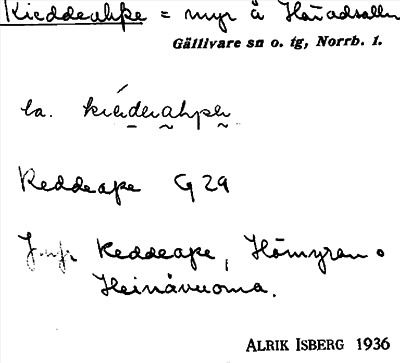 Kieddeahpe = myr å Häradsallm
Gällivare sn o. tg, Norrb. l.
la. kiédeahpeh
Keddeape G 29
Jmfr Keddeape, Hömyran o
Heinävuoma.
ALRIK ISBERG 1936